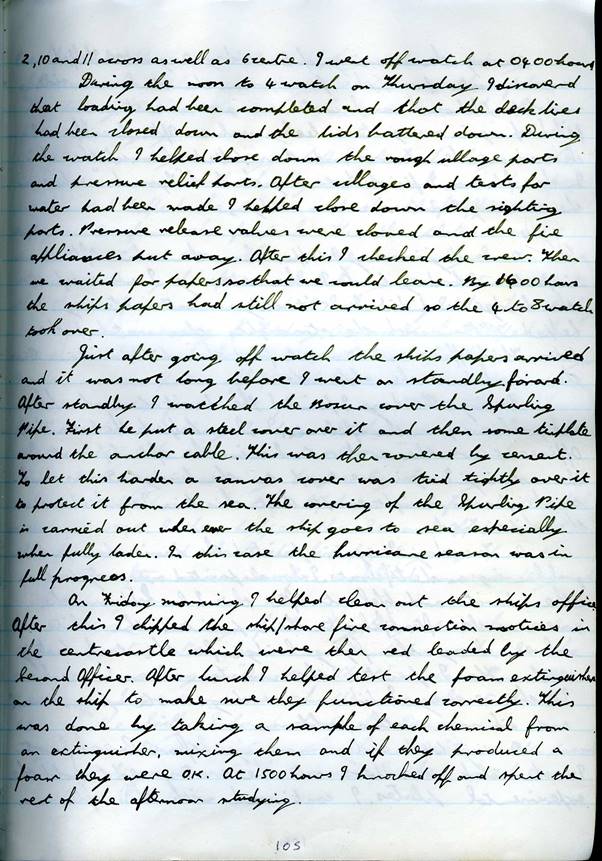 2, 10 and 11 across as well as 6 centre. I went off watch at 0400 hours
During the noon to 4 watch on Thursday I discoverd
that loading had been completed and that the deck lines
had been closed down and the lids battered down. During
the watch I helped close down the rough ullage ports
and pressure relief ports. After ullages and tests for
water had been made I helped close down the sighting
ports. Pressure release valves were closed and the fire
appliances put away. After this I checked the crew. Then
we waited for papers so that we could leave. By 1600 hours
the ships papers had still not arrived so the 4 to 8 watch
took over.
Just after going off watch the ships papers arrived
and it was not long before I went on standby forard.
After standby I watched the Bosun cover the Spurling
Pipe. First he put a steel cover over it and then some tinplate
around the anchor cable. This was then covered by cement.
To let this harden a canvas cover was tied tightly over it
to protect it from the sea. The covering of the Spurling Pipe
is carried out when ever the ship goes to sea especially
when fully laden. In this case the hurricane season was in
full progress.
On Friday morning I helped clean out the ships office
After this I chipped the ship/shore fire connection notices in
the centrecastle which were then red leaded by the
Second Officer. After lunch I helped test the foam extinguishers
on the ship to make sure they functioned correctly. This
was done by taking a sample of each chemical from
an extinguisher, mixing them and if they produced a
foam they were OK. At 1500 hours I knocked off and spent the
rest of the afternoon studying.
105